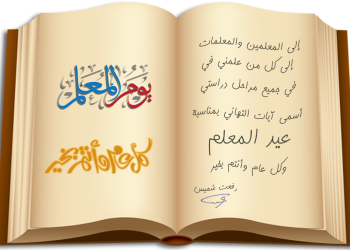 إلى المعلمين والمعلمات
إلى كل من علمني في
في جميع مراحل دراستي
أسمى آيات التهاني بمناسبة
عيد المعلم
وكل عام وأنتم بخير
رفعت شميس
يوم المعلم
كل عام وأنتم بخير